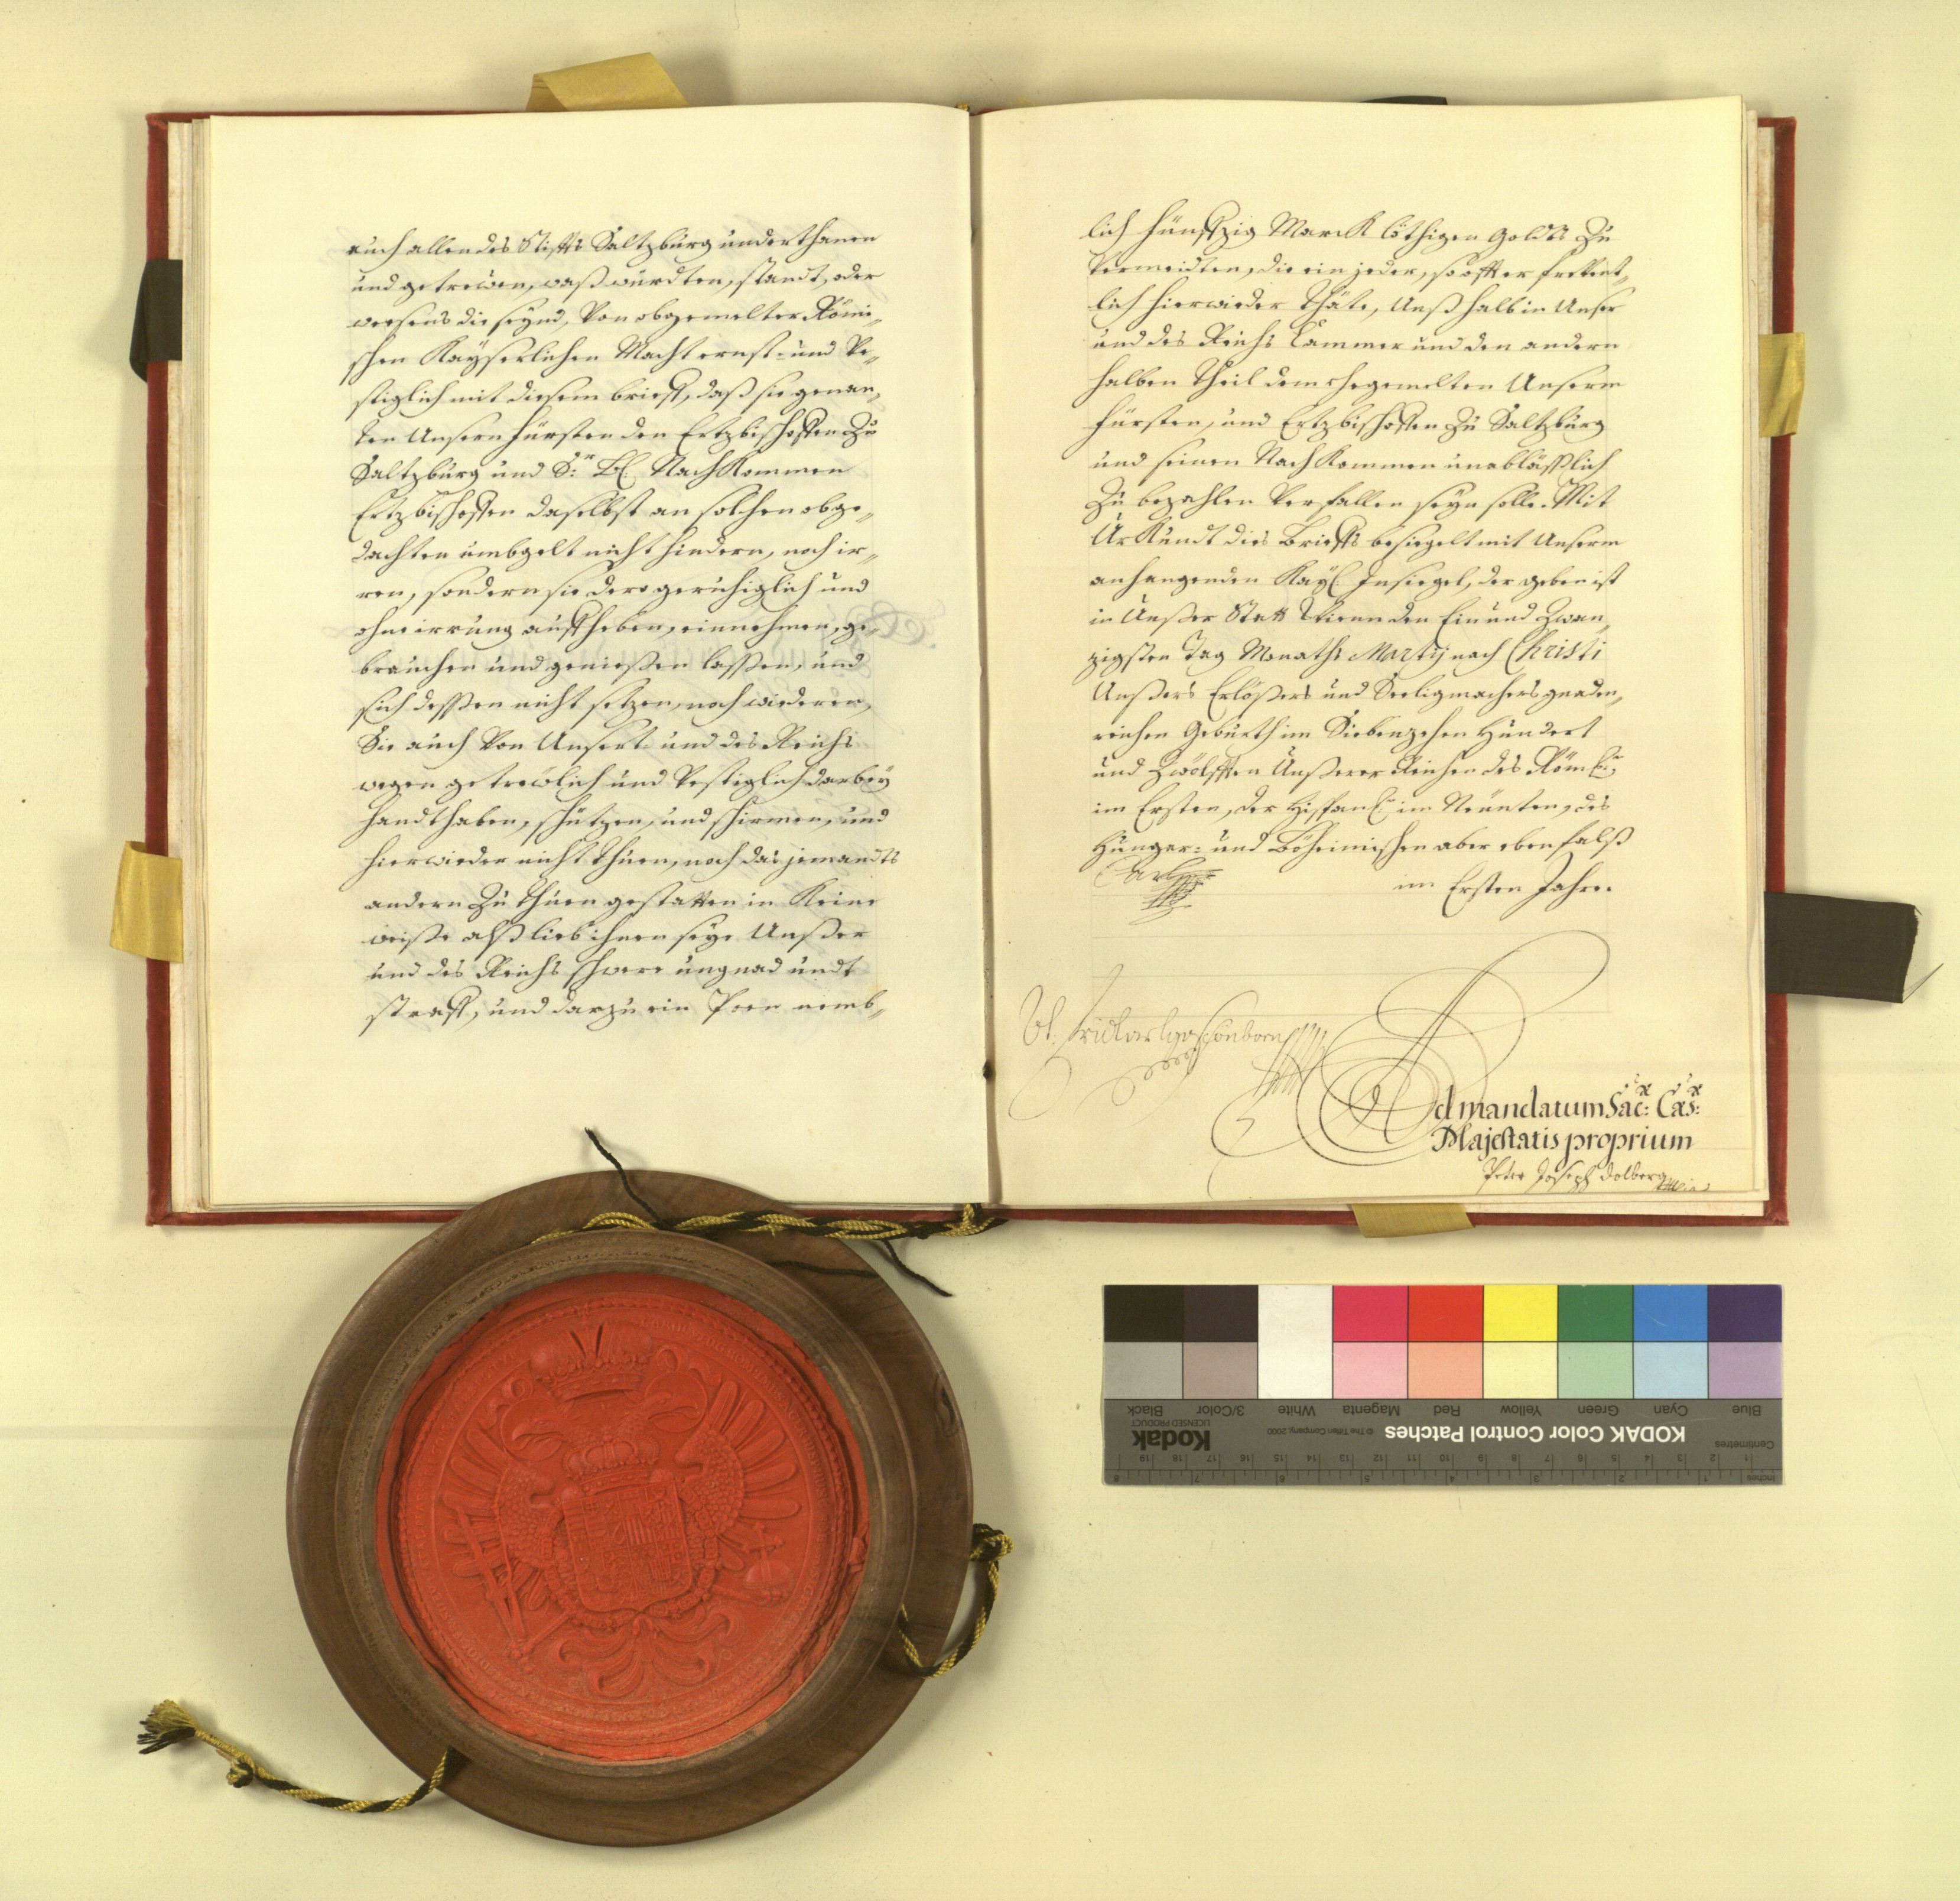 auch allen des Stiffts Saltzburg underthanen
und getrewen, waß würdten, standt, oder
weesens die seynd, Von obgemelter Römi„
schen Kayserlichen Macht ernst- und Ve„
stiglich mit diesem brieff, daß sie genan„
ten Unsern fürsten den Ertzbischoffen Zu
Saltzburg und Sr. Ld. NachKommen
Ertzbischoffen daselbst an solchen obge„
dachten umbgelt nicht hindern, noch ir„
ren, sondern sie dero geruhiglich und
ohne irrung auffheben, einnehmen, ge„
brauchen und genießen lassen, und
sich dessen nicht setzen, noch wiederen,
Sie auch Von Unsert- und des Reichs
wegen getrewlich und Vestiglich darbey
handthaben, schützen, und schirmen, und
hierwieder nicht thuen, noch das jemandts
andern Zu thuen gestatten in Keine
weiße alß lieb ihnen seye Unßer
und des Reichs schwere ungnad undt
straff, und darzu ein Poen nemb„
lich fünffzig Marck löthigen Goldts Zu
Vermeidten, die ein jeder, so offt er freVent„
lich hierwieder thäte, Unß halb in Unser
und des Reichs Cammer und den andern
halben Theil dem ehegemelten Unserm
fürsten, und Ertzbischoffen Zu Saltzburg
und seinen NachKommen unabläßlich
Zu bezahlen Verfallen seyn solle. Mit
UrKundt dies Brieffs besiegelt mit Unserm
anhangenden Kayl. Insiegel, der geben ist
in Unßer Statt Wienn den Ein und Zwan„
zigsten Tag Monaths Martij nach Christi
Unßers Erlößers und Seeligmachers gnaden„
reichen Geburth im Siebenzehen Hundert
und Zwölfften Unßerer Reichen des Röml:
im Ersten, der Hispanl. im Neunten, des
Hungar- und Böheimischen aber ebenfalß
im Ersten Jahre.
Carl
Vt. Frid Carl Schönborn
Ad mandatum Sac: Cæs:
Majestatis proprium
Peter Joseph Dolberg
Blue Cyan Green Yellow Red Magenta White 3/Color Black
KODAK Color Control Patches © The Tiffen Company, 2000 Kodak
LICENSED PRODUCT
Centimetres
Inches